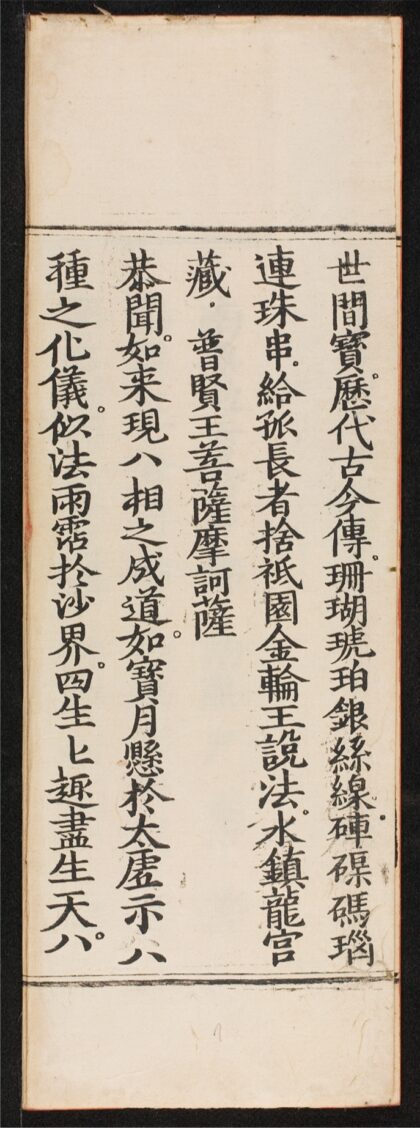 世間寶。歷代古今傳。珊瑚琥珀銀絲線。硨磲碼瑙
連珠串。給孤長者捨祇園金輪王說法。水鎮龍宮
藏，普賢王菩薩摩訶薩
恭聞。如来現八相之成道。如寶月懸於太虛示八
種之化儀。似法雨霑於沙界。四生七趣盡生天。八